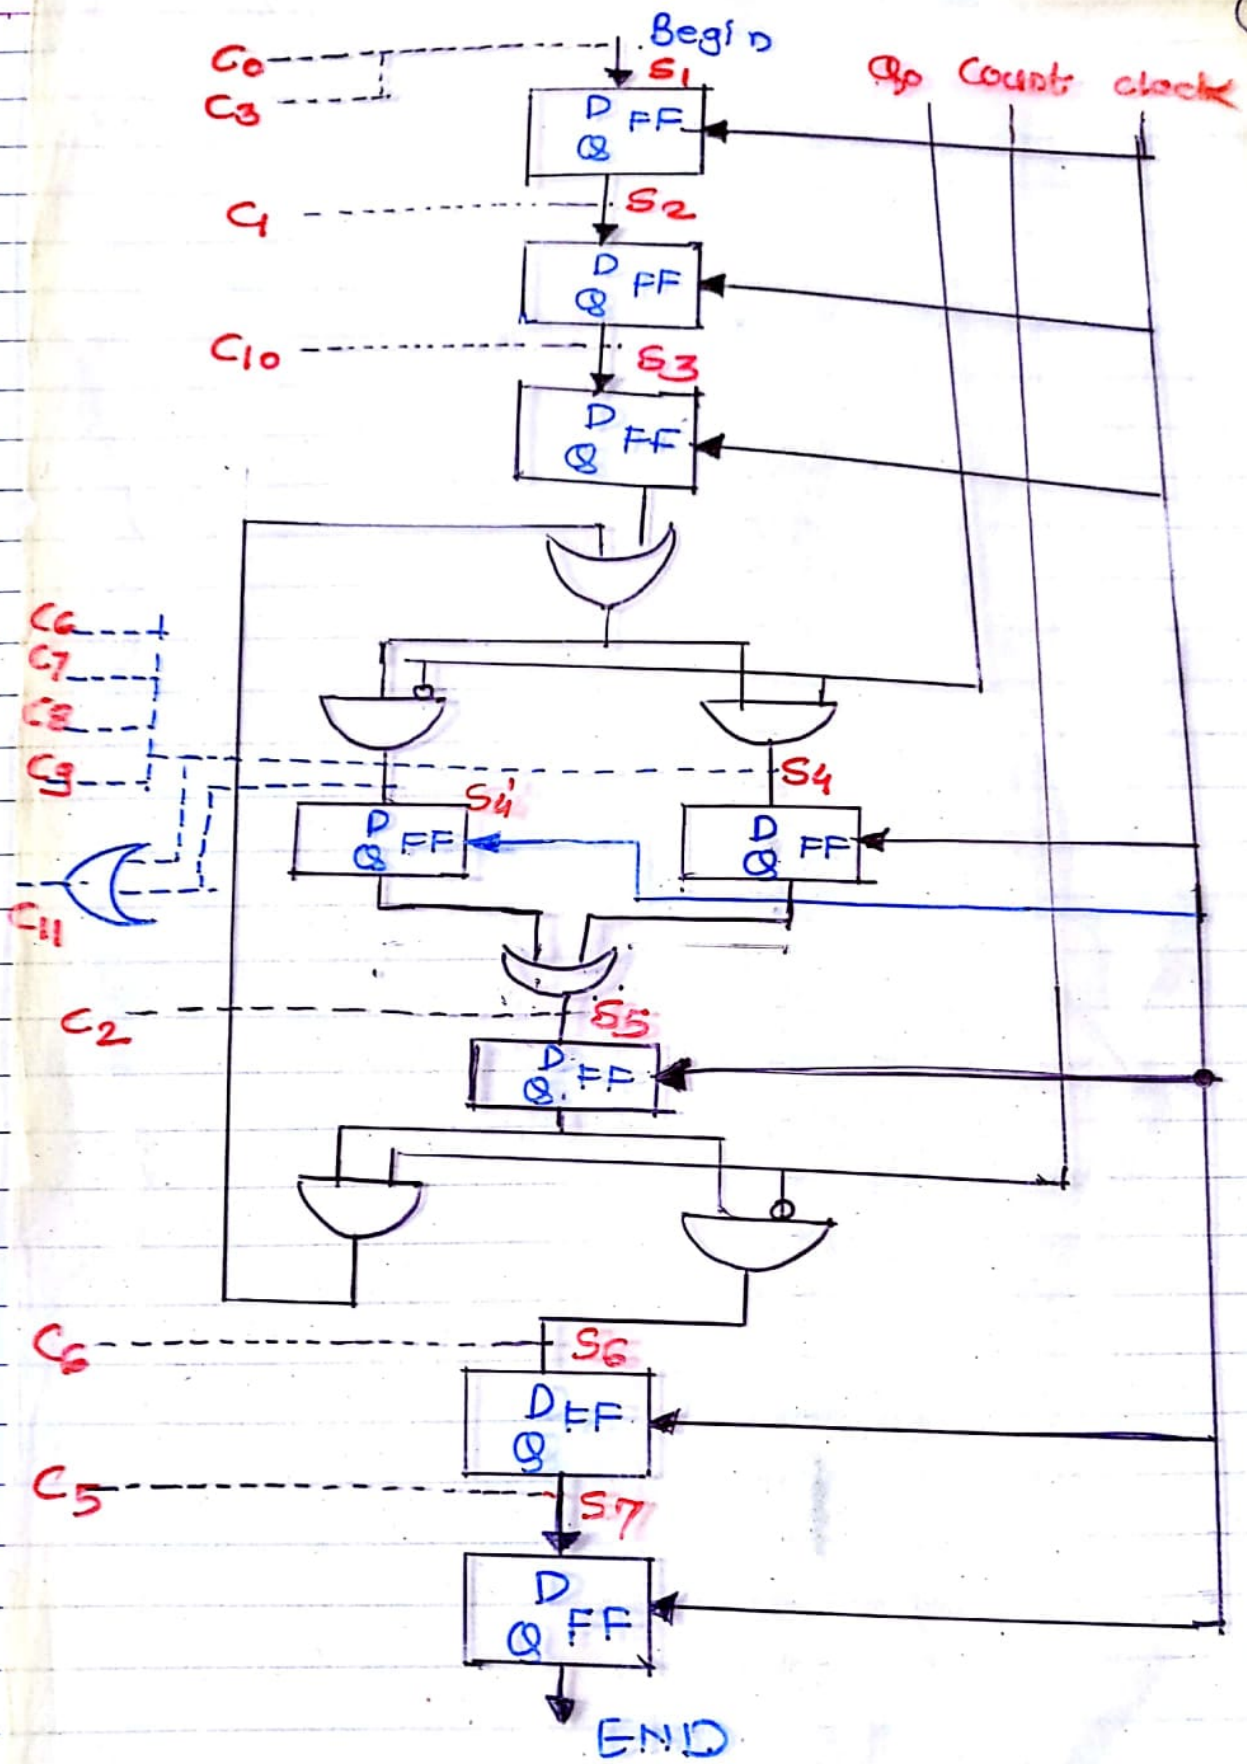 Begin
C0
S1
Q0 Count clock
C3
D FF
Q
C1
S2
D FF
Q
C10
S3
D FF
Q
C6
C7
C8
C9
S4
S4'
D FF
Q
D FF
Q
C11
C2
S5
D FF
Q
C6
S6
D FF
Q
C5
S7
D
Q FF
END